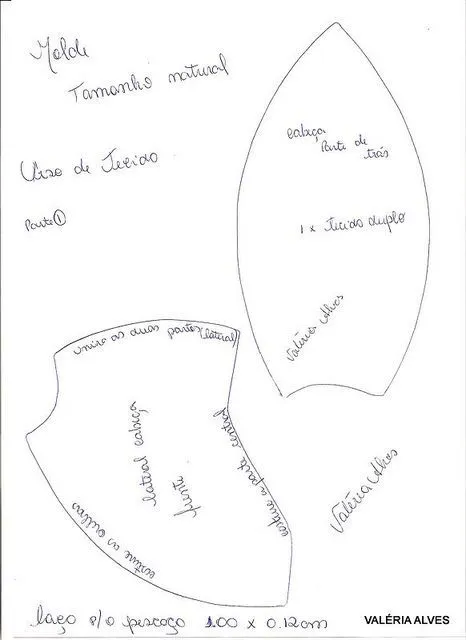 Molde
Tamanho natural
Urso de Tecido
Parte ①
cabeça
Parte de
trás
1 x Tecido duplo
Valéria Alves
unir as duas partes (lateral)
lateral cabeça
frente
costure a parte central
costure as orelhas
Valéria Alves
laço p/o pescoço 1.00 x 0.12cm
VALÉRIA ALVES